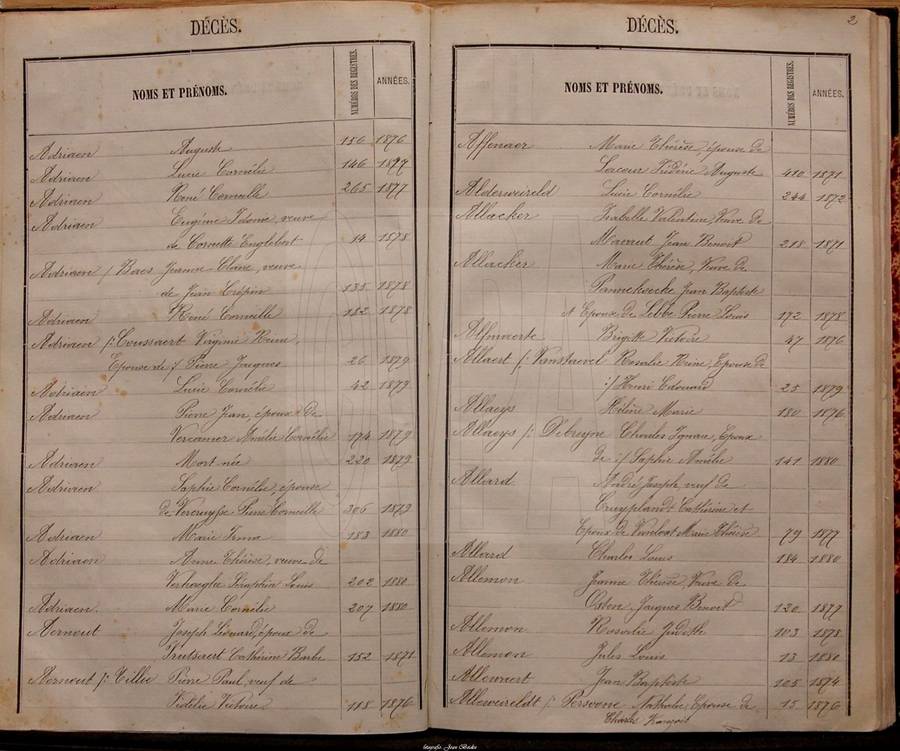 DÉCÈS.
NOMS ET PRÉNOMS. NUMÉROS DES REGISTRES. ANNÉES.
Adriaen Auguste 156 1876
Adriaen Lucie Cornélie 146 1877
Adriaen René Corneille 265 1877
Adriaen Eugénie Idonie, veuve
de Cornette Englebert 14 1878
Adriaen / Baes Jeanne Claire, veuve
de Jean Crépin 135 1878
Adriaen René Corneille 182 1878
Adriaen /: Coussaert Virginie Reine,
Epouse de :/ Pierre Jacques 26 1879
Adriaen Lucie Cornélie 42 1879
Adriaen Pierre Jean, époux de
Vercamer Amélie Cornélie 174 1879
Adriaen Mort-née 220 1879
Adriaen Sophie Cornélie, épouse
de Vercruysse Pierre Corneille 206 1879
Adriaen Marie Irma 183 1880
Adriaen Anne Thérèse, veuve de
Verhaeghe Séraphin Louis 202 1880
Adriaen. Marie Cornélie 207 1880
Aernout Joseph Léonard, époux de
Catherine Barbe 152 1871
Aernout /: Tillie Pierre Paul, veuf de
Fidélie Victoire 118 1876
2
DÉCÈS.
NOMS ET PRÉNOMS. NUMÉROS DES REGISTRES. ANNÉES.
Affenaer Marie Thérèse, épouse de
Lacour Frédéric Auguste 410 1871
Alderweireld Lucie Cornélie 244 1872
Allacker Isabelle Valentine, Veuve de
Jean Benoit 218 1871
Allacker Marie Thérèse, Veuve de
Pannekoecke Jean Baptiste
et Epouse de Lebbe Pierre Louis 172 1878
Brigitte Victoire 47 1876
Allaert /: Vanstavel Rosalie Reine, Epouse de
:/ Henri Edouard 25 1879
Allaeys Hélène Marie 180 1876
Allaeys /: Debruyne Charles Ignace, Epoux
de :/ Sophie Amélie 141 1880
Allard André Joseph, veuf de
Cruyplandt Cathérine et
Epoux de Marie Thérèse 79 1877
Allard Charles Louis 184 1880
Allemon Jeanne Thérèse, Veuve de
Osten, Jacques Benoit 120 1877
Allemon Rosalie Judith 103 1878
Allemon Jules Louis 13 1880
Jean Baptiste 105 1874
Alleweireldt /: Persoone Nathalie, Epouse de
Charles François 15 1876